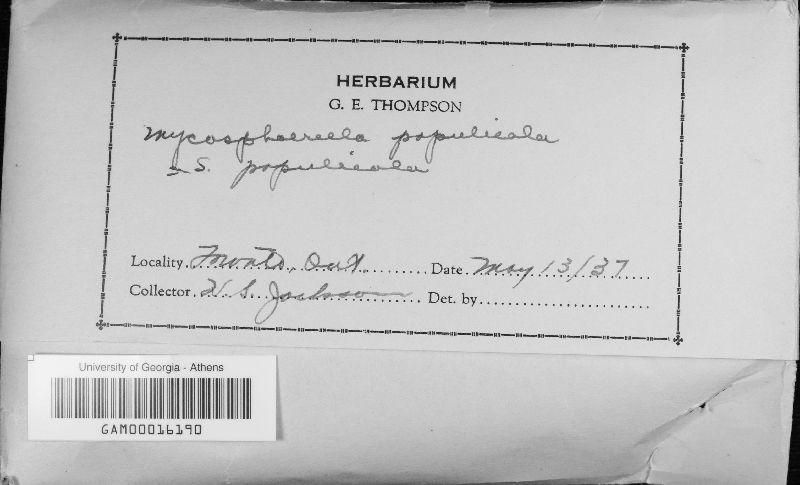 HERBARIUM
G. E. THOMPSON
Mycosphaerella populicola
= S. populicola
Locality Toronto, Ont. Date May 13/37
Collector H. S. Jackson Det. by
University of Georgia - Athens
GAM00016190